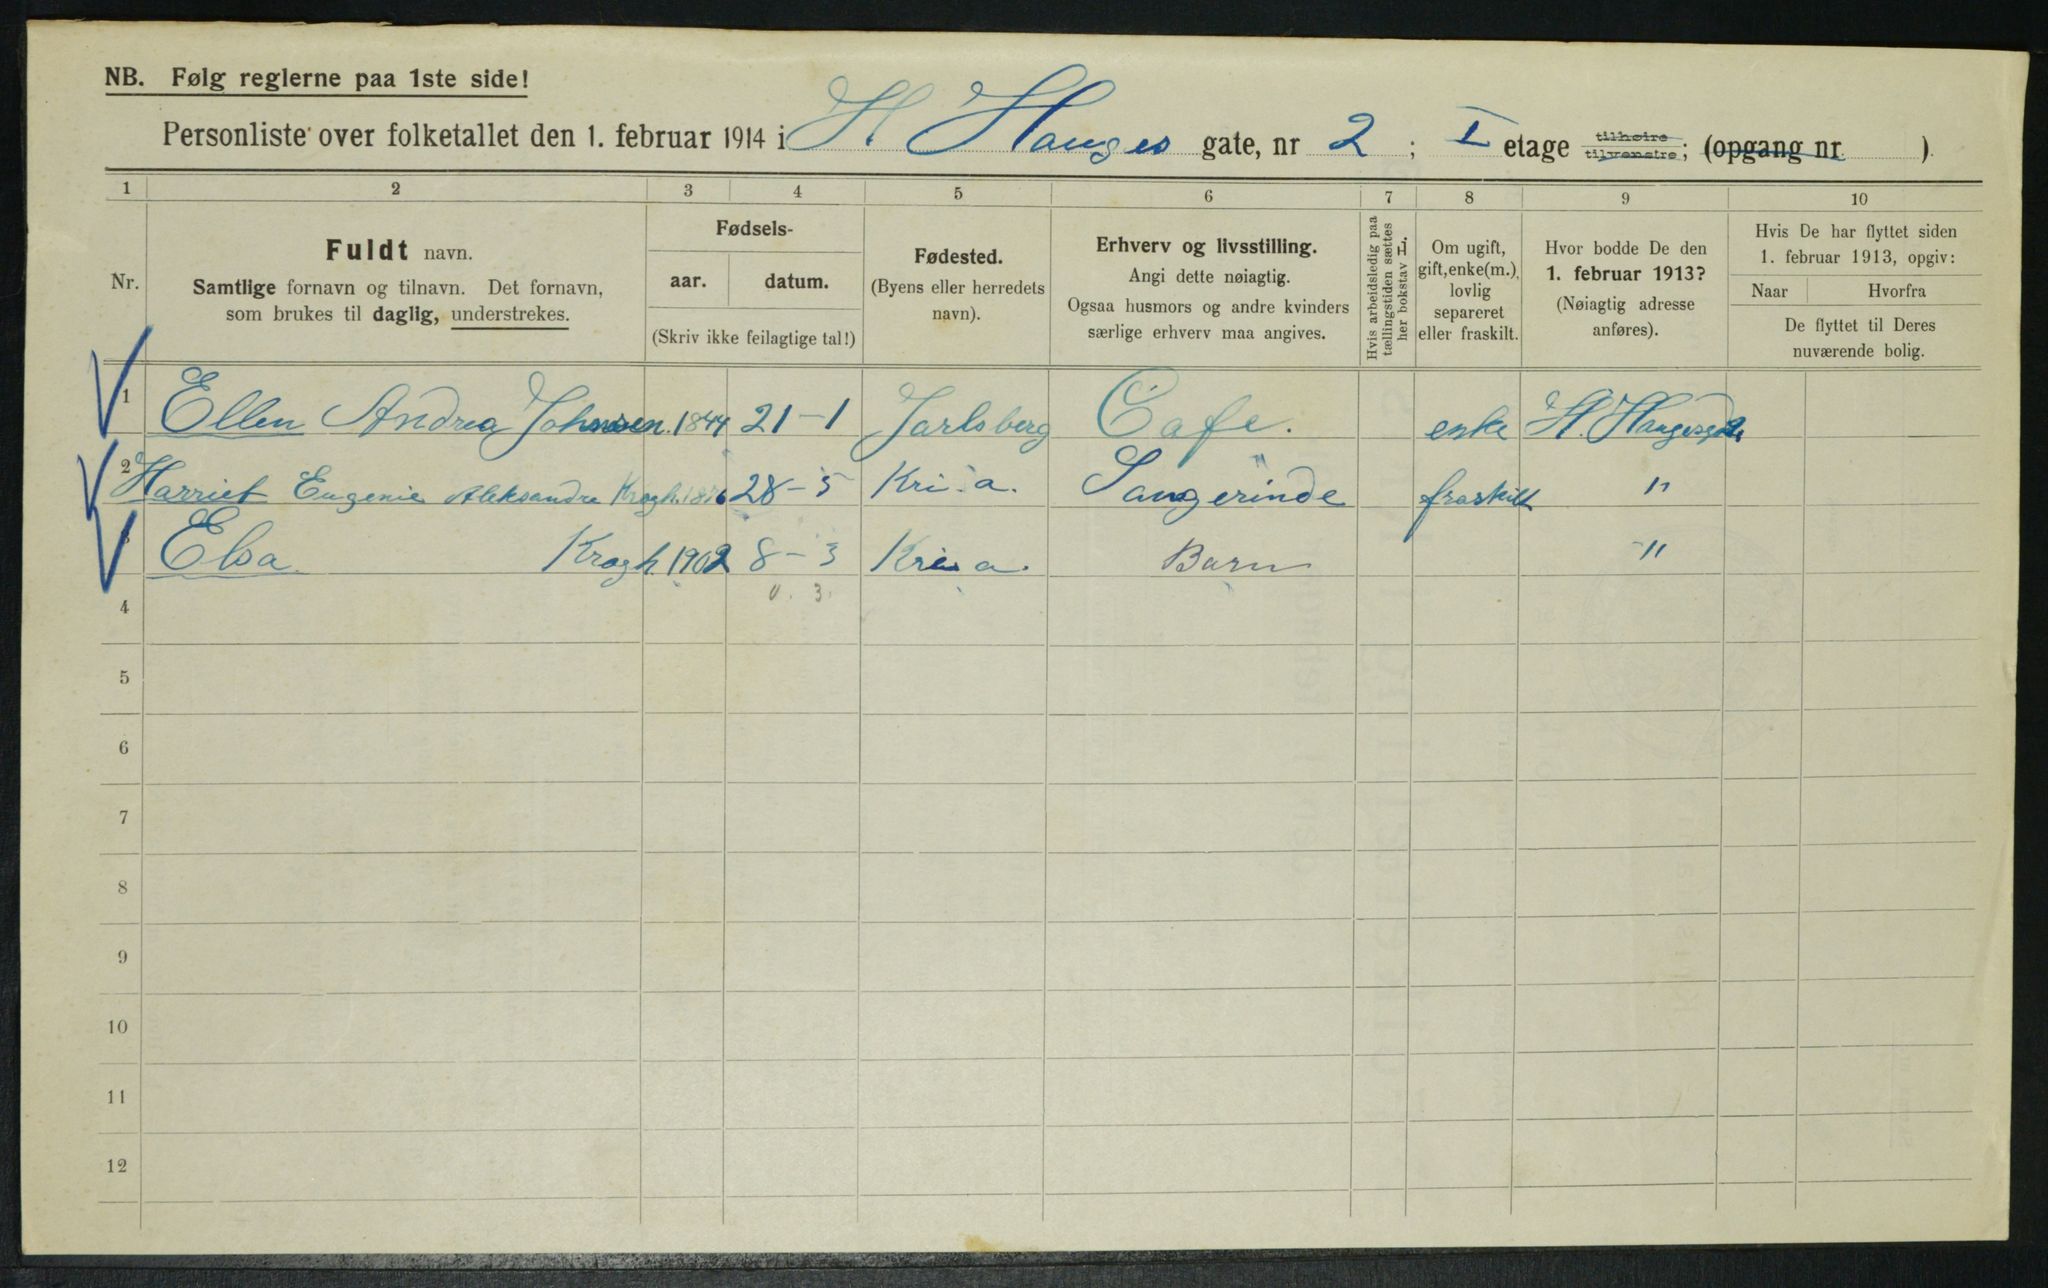 NB. Følg reglerne paa 1ste side!
Personliste over folketallet den 1. februar 1914 i H Hauges gate, nr 2; I etage tilhøire tilvenstre; (opgang nr )
1 2 3 4 5 6 7 8 9 10
Nr.
Fuldt navn.
Samtlige fornavn og tilnavn. Det fornavn,
som brukes til daglig, understrekes.
Fødsels-
aar. datum.
(Skriv ikke feilagtige tal!)
Fødested.
(Byens eller herredets
navn).
Erhverv og livsstilling.
Angi dette nøiagtig.
Ogsaa husmors og andre kvinders
særlige erhverv maa angives.
Hvis arbeidsledig paa
tællingstiden sættes
her bokstav L.
Om ugift,
gift, enke(m.),
lovlig
separeret
eller fraskilt.
Hvor bodde De den
1. februar 1913?
(Nøiagtig adresse
anføres).
Hvis De har flyttet siden
1. februar 1913, opgiv:
Naar Hvorfra
De flyttet til Deres
nuværende bolig.
1 Ellen Andrea Johnsen. 1844 21-1 Jarlsberg Cafe. enke H. Haugesgd 2
2 Harriet Eugenie Aleksandra Krogh. 1876 28-5 Kri.a. Sangerinde fraskilt "
3 Elsa Krogh 1902 8-3 Kria. Barn - "
v. 3.
4
5
6
7
8
9
10
11
12